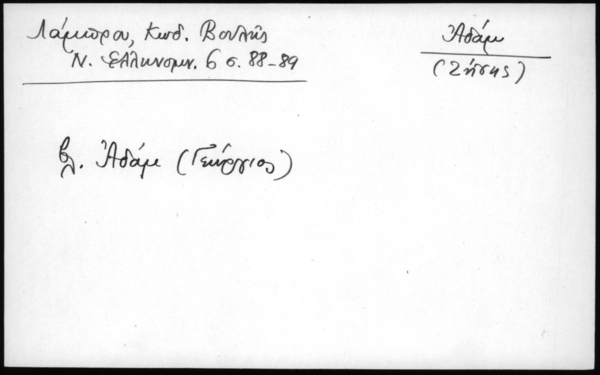 Λάμπρου, Κωδ. Βουλῆς
Ν. Ἑλληνομν. 6 σ. 88-89
Ἀδάμ
(Ζήσης)
βλ. Ἀδάμ (Γεώργιος)